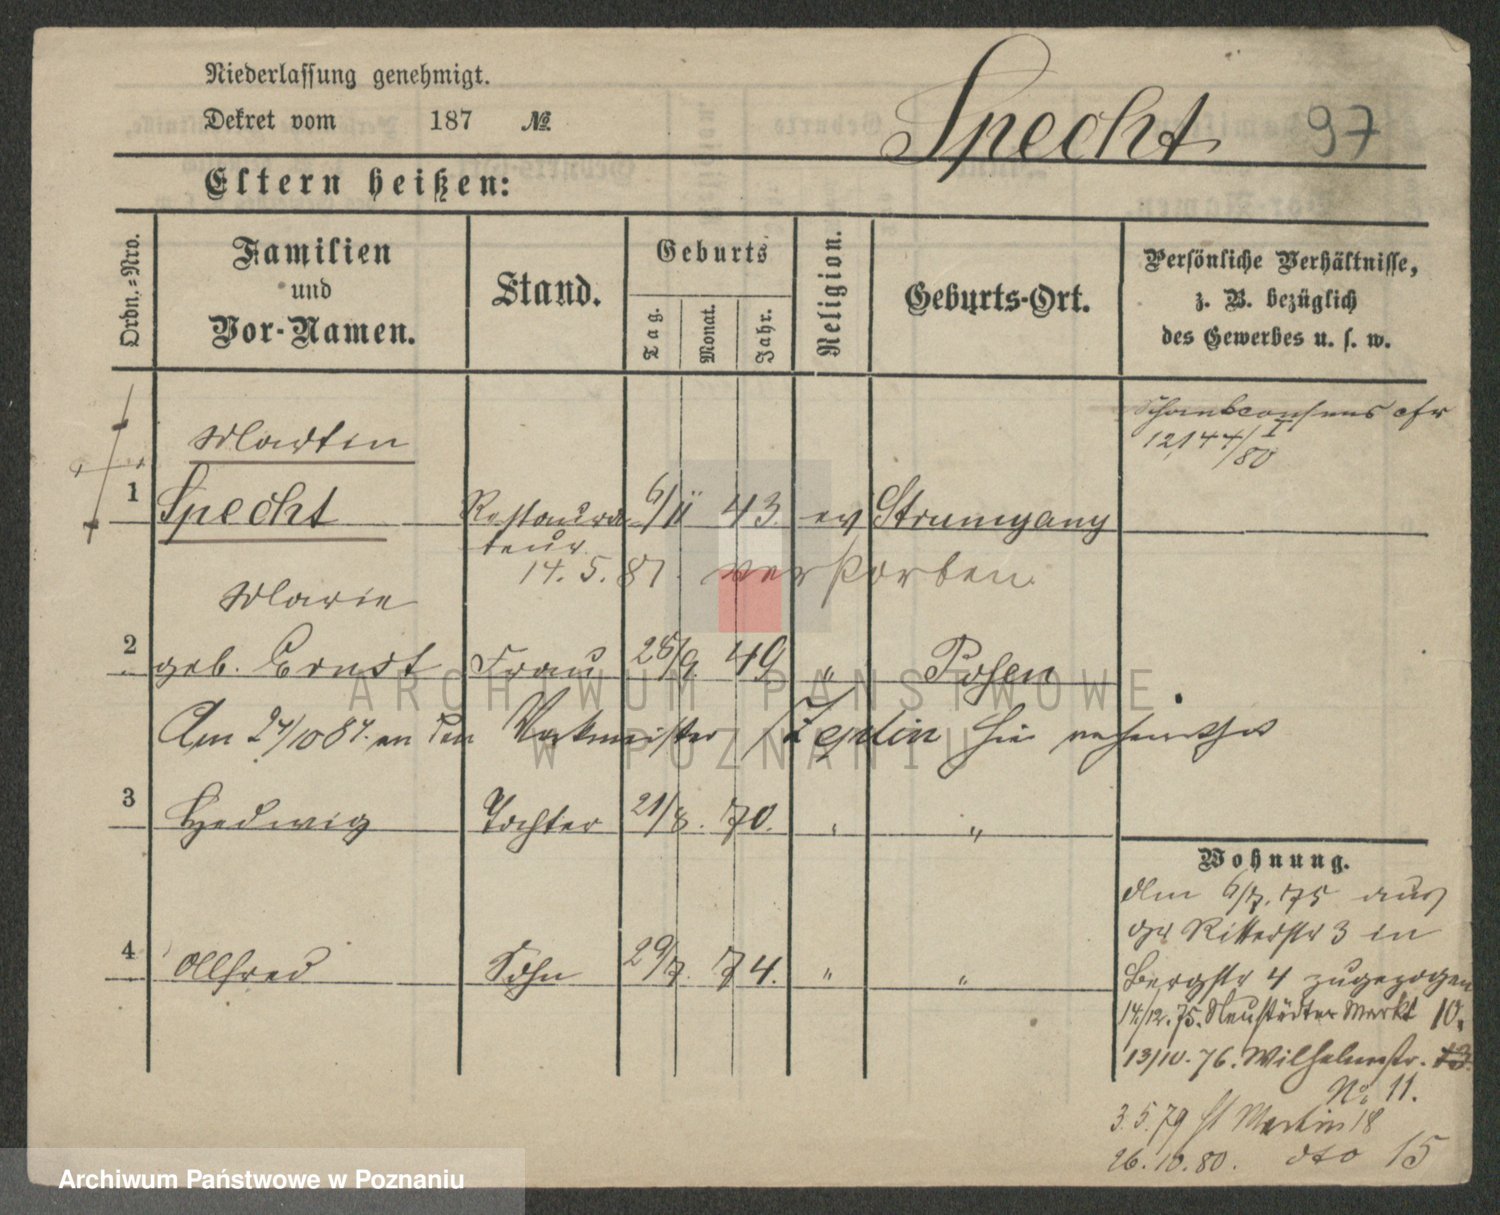 Niederlassung genehmigt.
Specht 97
Dekret vom 187 №
Eltern heißen:
Ordn.=Nro.
Familien
und
Vor-Namen.
Stand.
Geburts
Tag.
Monat.
Jahr.
Religion.
Geburts-Ort.
Persönliche Verhältnisse,
z. B. bezüglich
des Gewerbes u. s. w.
Schankconsens cfr
12144/I
/80
Martin
1 Specht Restaura 6/11 43. ev
teur
14. 5. 87. verstorben.
Marie
2 geb. Ernst Frau 9 49 " Posen
Am 24/10 87. an den Werkmeister hier
3 Hedwig Tochter 21/8. 70. " "
Wohnung.
4 Alfred Sohn 29/7. 74. " "
Den 6/7. 75 aus
der Ritterstr 3 in
Bergstr 4 zugezogen
14/12. 75. Neustädter Markt 10.
13/10. 76. Wilhelmstr. 13.
No. 11.
3. 5. 79 St Martin 18
26. 10. 80. dto 15
ARCHIWUM PAŃSTWOWE
W POZNANIU
Archiwum Państwowe w Poznaniu